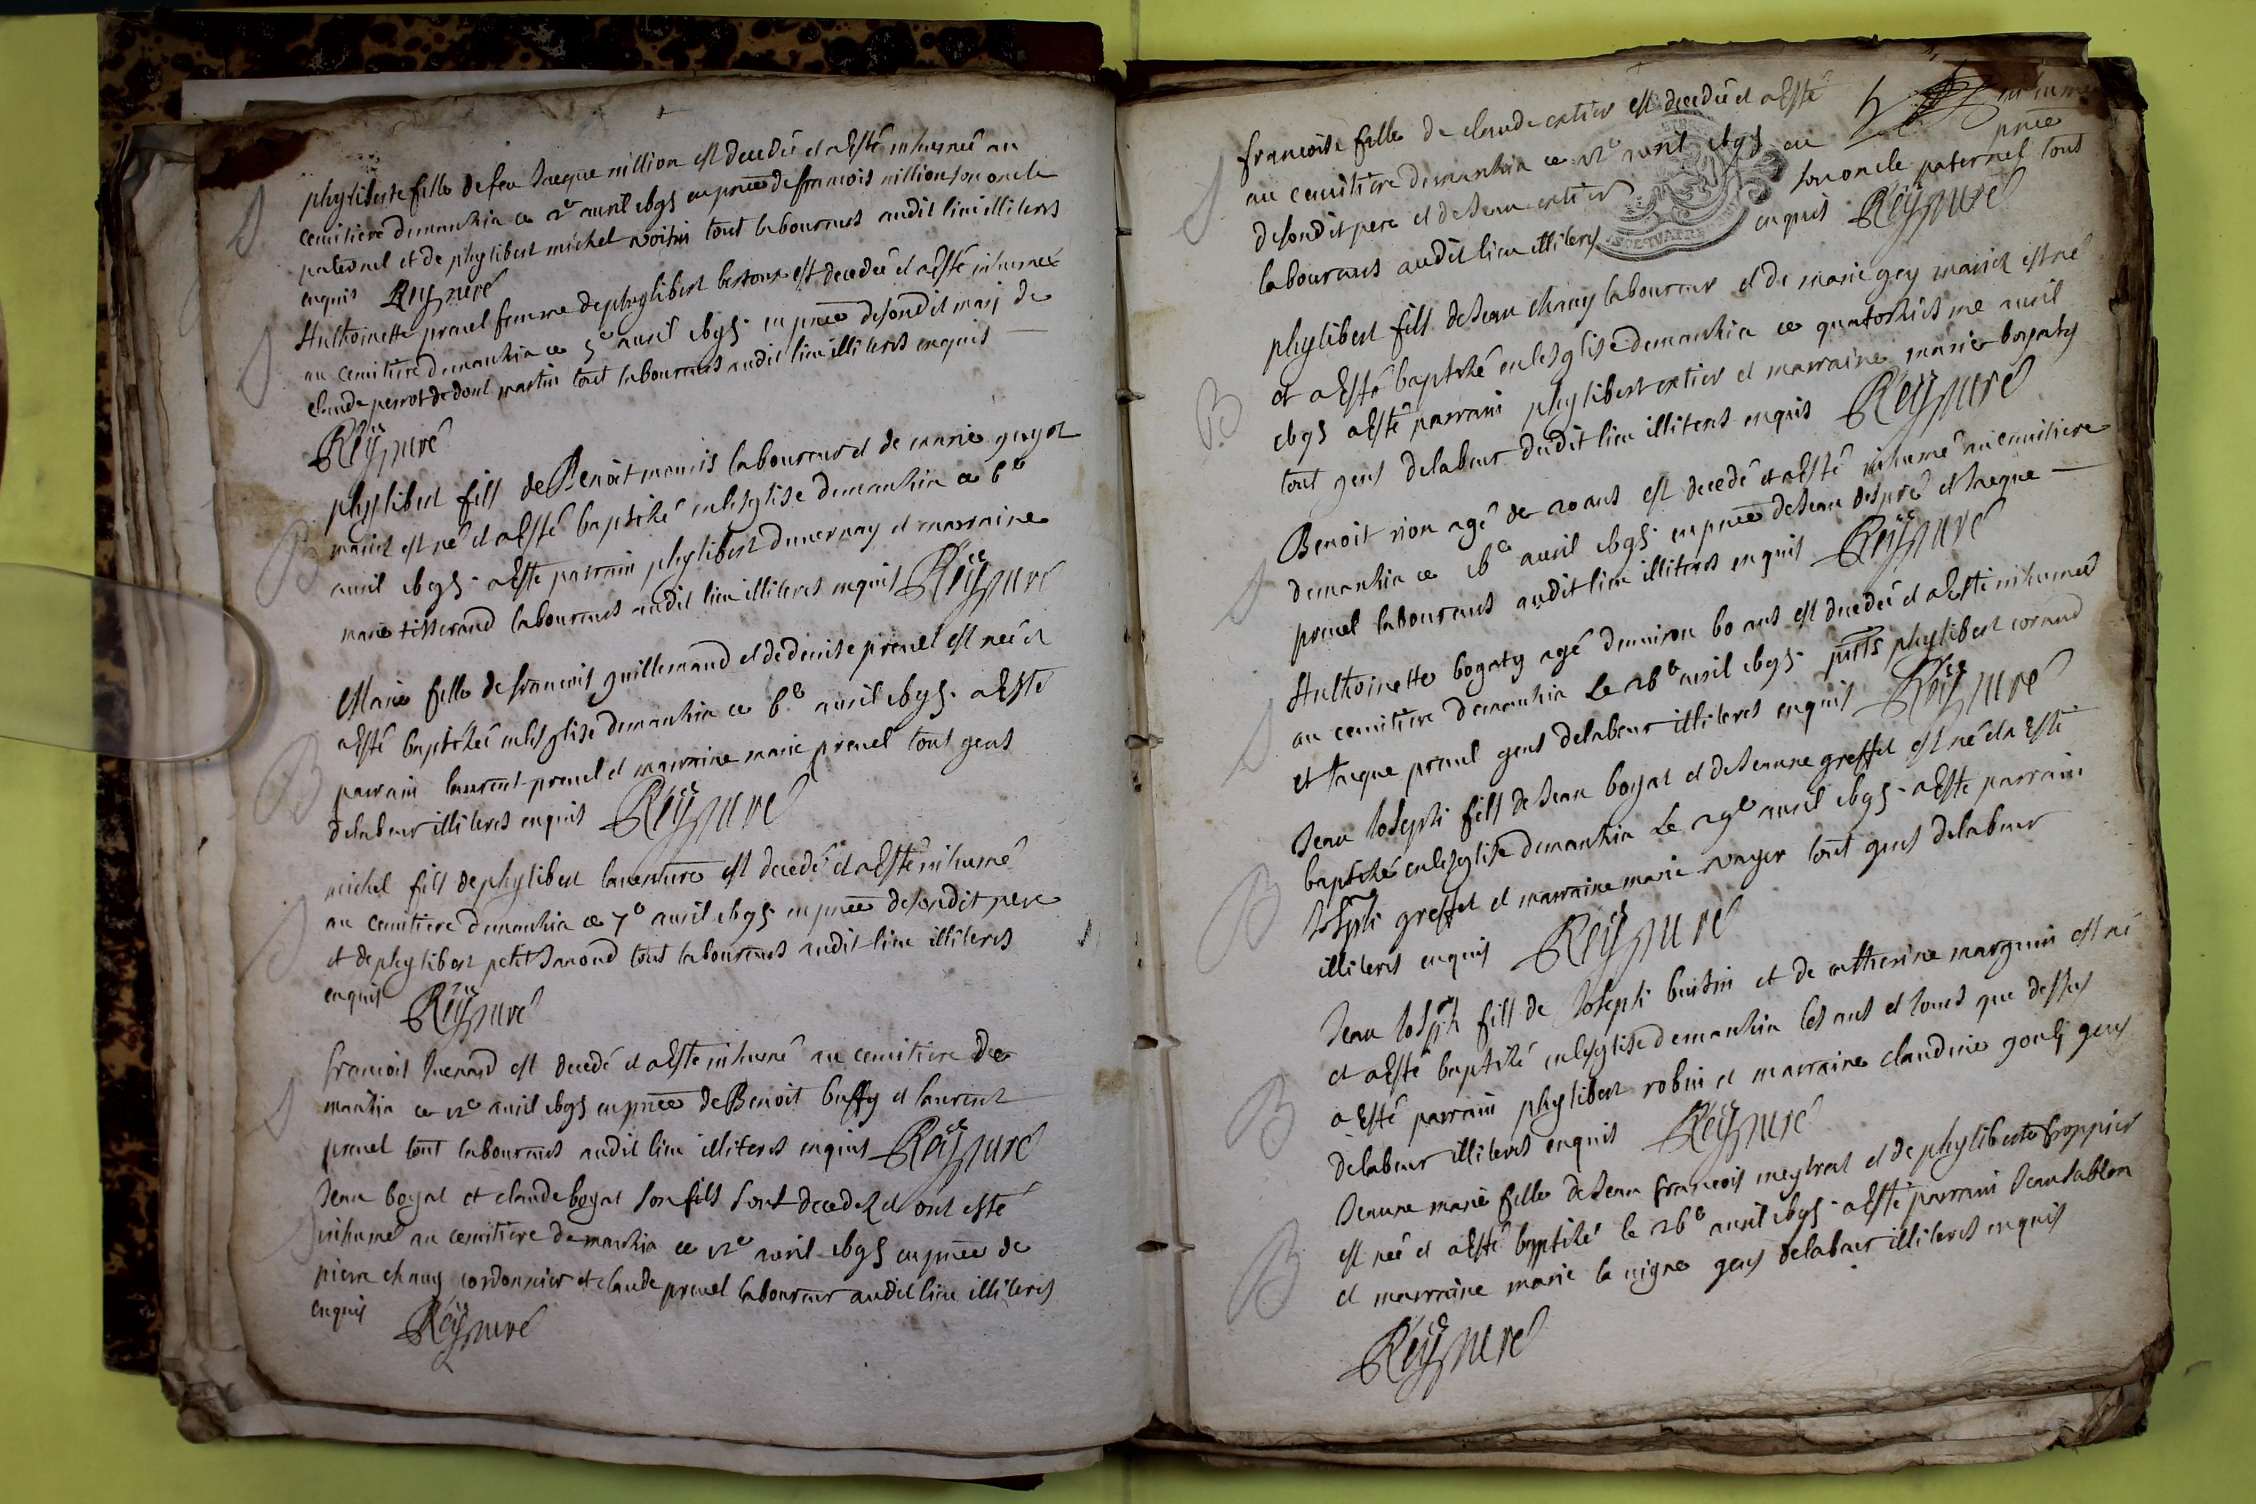 S
phyliberte fille de feu Jacque million est decedeé et a Esté inhumeé au
cemitiere demanhia ce 2e auril 1695 en pnce de francois million son oncle
paternel et de phylibert michel voisin tout laboureurs audit lieu illiteres
enquis Reÿ curé
S
Anthoinette preuel femme de phylibert bertoux est decedeé et a Esté inhumeé
au cemitiere demanhia ce 5e auril 1695 en pnce desondit mary de
claude perrot de dont martin tout laboureurs audit lieu illiteres enquis
Reÿ curé
B
phylibert fils de Benoit mouris laboureur et de marie guyot
mariez est né et a Esté baptizé en lesglize demanhia ce 6e
auril 1695 a Esté parrain phylibert duuernay et marraine
marie tisserand laboureurs audit lieu illiteres enquis Reÿ curé
B
Marie fille de francois guillemaud et de denise preuel est neé et
a Esté baptizeé en lesglize demanhia ce 6e auril 1695 a Esté
parrain laurent preuel et marraine marie preuel tout gens
delabeur illiteres enquis Reÿ curé
S
michel fils de phylibert lauenture est decedé et a Esté inhumé
au cemitiere demanhia ce 7e auril 1695 en pnce desondit pere
et de phylibert petit Janond tout laboureurs audit lieu illiteres
enquis Reÿ curé
S
francois Juenard est decedé et a Esté inhumé au cemitiere de
manhia ce 12e auril 1695 en pnce de Benoit buffy et laurent
preuel tout laboureurs audit lieu illiteres enquis Reÿ curé
S
Jean bogat et claude bogat son fils sont decedez et ont esté
inhumé au cemitiere demanhia ce 12e auril 1695 en pnce de
pierre chauy cordonnier et claude preuel laboureur audit lieu illiteres
enquis Reÿ curé
S
francoise fille de claude catier est decedeé et a Esté inhumeé
au cemitiere demanhia ce 12e auril 1695 en pnce
desondit pere et de Jean catier son oncle paternel tout
laboureurs audit lieu illiteres enquis Reÿ curé
B
phylibert fils de Jean chauy laboureur et de marie gey mariez est né
et a Esté baptizé en lesglize demanhia ce quatorhiesme auril
1695 a Esté parrain phylibert catier et marraine marie bogaty
tout gens delabeur dudit lieu illiteres enquis Reÿ curé
S
Benoit rion agé de 20 ans est decedé et a Esté inhumé au cemitiere
demanhia ce 16e auril 1695 en pnce de Jean despré et Jacque
preuel laboureurs audit lieu illiteres enquis Reÿ curé
S
Anthoinette bogaty agé denuiron 60 ans est decedeé et a Esté inhumeé
au cemitiere demanhia Le 26e auril 1695 pnts phylibert corand
et Jacque preuel gens delabeur illiteres enquis Reÿ curé
B
Jean Joseph fils de Jean bogat et de Jeanne greffet est né et a Esté
baptizé en lesglize demanhia Le 29e auril 1695 a Esté parrain
Joseph greffet et marraine marie voyer tout gens delabeur
illiteres enquis Reÿ curé
B
Jean Joseph fils de Joseph buisin et de catherine marguin est né
et a Esté baptizé en lesglize demanhia les ans et Jours que dessus
a Esté parrain phylibert robin et marraine claudine gouly gens
delabeur illiteres enquis Reÿ curé
B
Jeanne marie fille de Jean francois meytrat et de phyliberte froppier
est neé et a Esté baptizé le 26e auril 1695 a Esté parrain Jean sablon
et marraine marie la vigne gens delabeur illiteres enquis
Reÿ curé